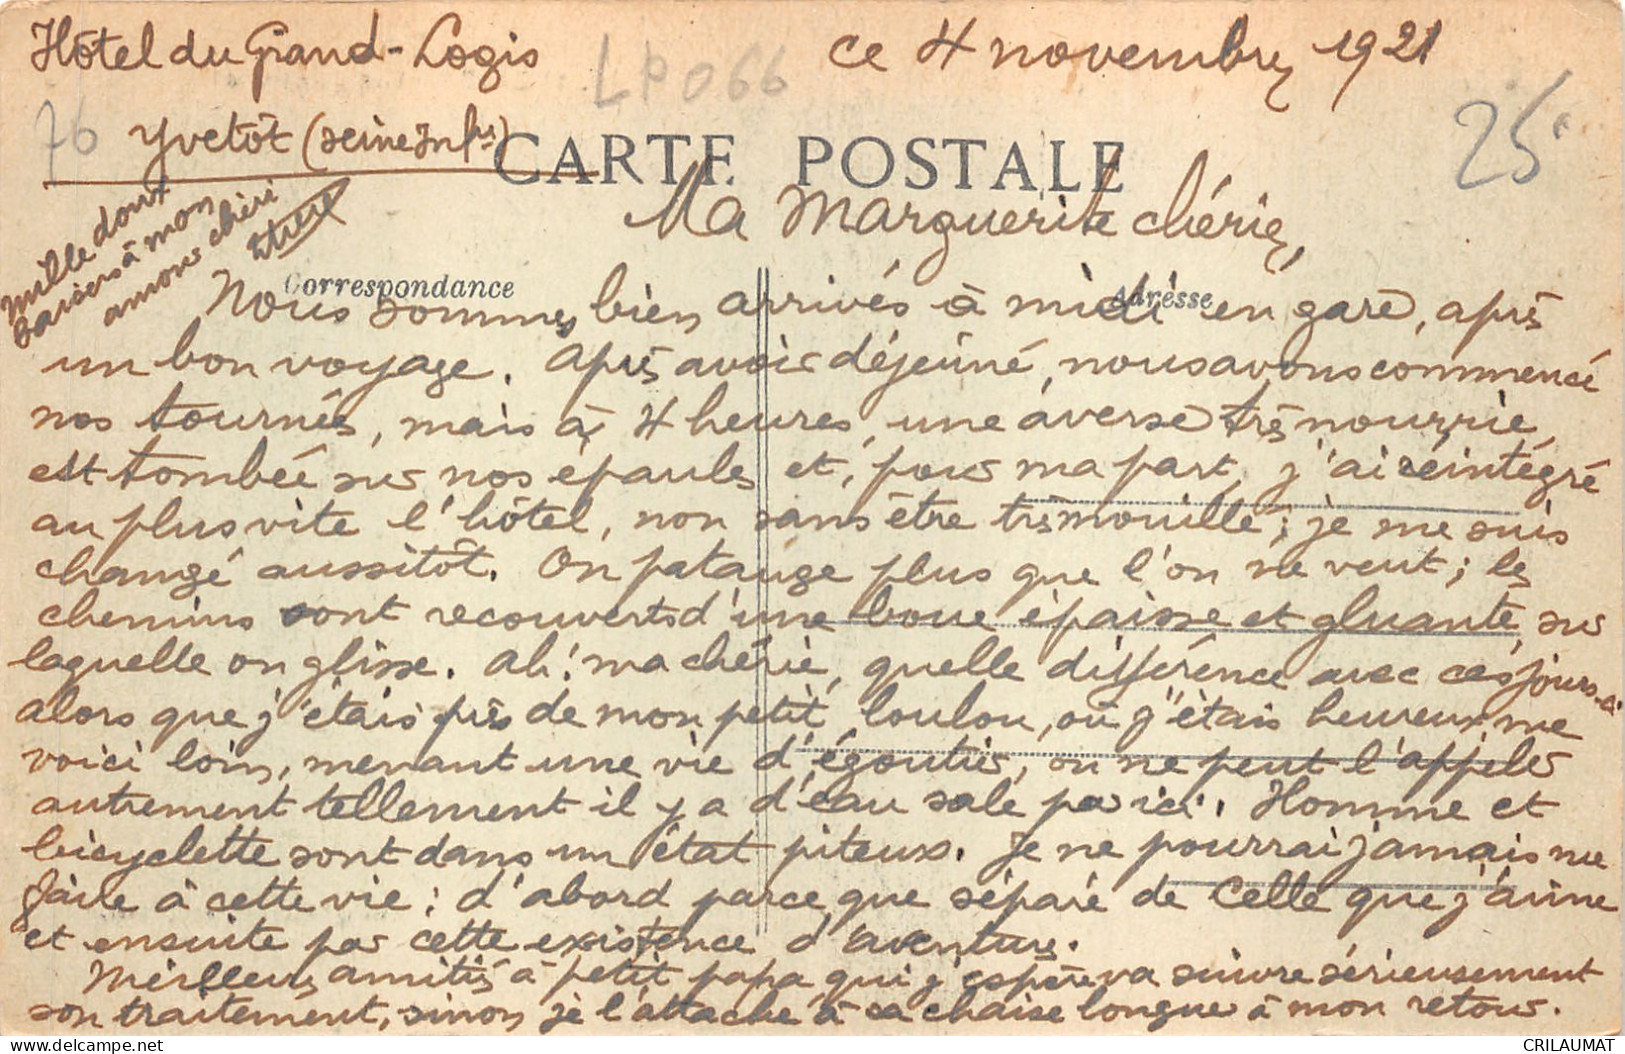 Hôtel du Grand-Logis
ce 4 novembre 1921
LP066
76
Yvetôt (Seine Infre)
25
CARTE POSTALE
Mille doux
baisers à mon
amour chéri
Ma Marguerite chérie,
Correspondance
Adresse
Nous sommes bien arrivés à midi en gare, après
un bon voyage. Après avoir déjeûné, nous avons commencé
nos tournées, mais à 4 heures, une averse très nourrie,
est tombée sur nos épaules et, pour ma part, j'ai réintégré
au plus vite l'hôtel, non sans être très mouillé; je me suis
changé aussitôt. On patauge plus que l'on ne veut; les
chemins sont recouverts d'une boue épaisse et gluante, sur
laquelle on glisse. Ah! ma chérie, quelle différence avec ces jours-ci
alors que j'étais près de mon petit loulou, où j'étais heureux, me
voici loin, menant une vie d'égoutier, on ne peut l'appeler
autrement tellement il y a d'eau sale par ici. Homme et
bicyclette sont dans un état piteux. Je ne pourrai jamais me
faire à cette vie: d'abord parce que séparé de Celle que j'aime
et ensuite par cette existence d'aventures.
Meilleurs amitiés à petit papa qui j'espère va suivre sérieusement
son traitement, sinon je l'attache à sa chaise longue à mon retour.
CRILAUMAT